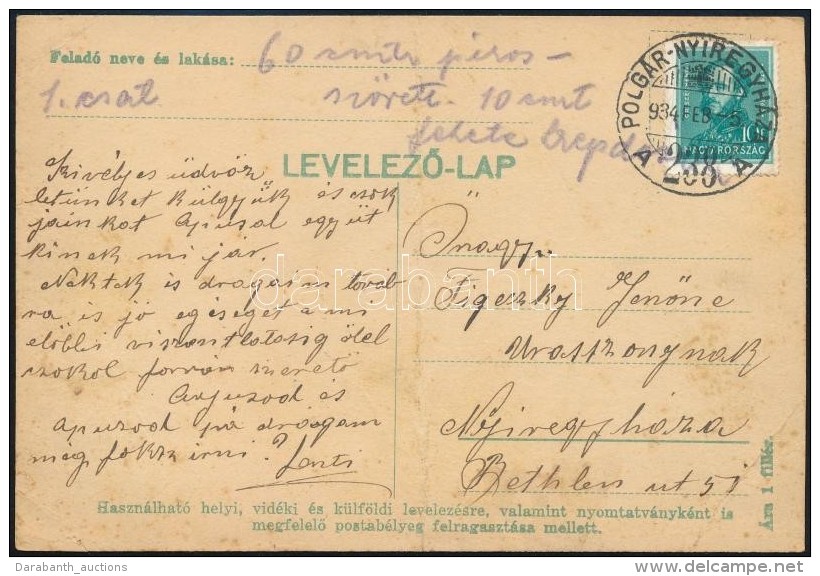 Feladó neve és lakása: 60 cmtr piros –
1. csat szövete. 10 cmt
fekete
LEVELEZŐ-LAP
POLGÁR-NYIREGYHÁZA
934 FEB -5
A 200 A
10f
MAGYARORSZÁG
Szivélyes üdvöz
letünket küldjük és csok
jainkat Apusal együt
kinek mi jár.
Nektek is drágáim továb
ra is jó egéséget a mi
előbbi viszontlátásig ölel
csokol forrón szerető
Anyusod és
apusod pá drágám
még foksz irni? Jenti
Önagy.
Figeczky Jenőne
Uraszzonynak
Nyiregyháza
Bethlen ut 51
Használható helyi, vidéki és külföldi levelezésre, valamint nyomtatványként is
megfelelő postabélyeg felragasztása mellett.
Ára 1 fillér.
darabanth
Darabanth_auctions
delcampe.net